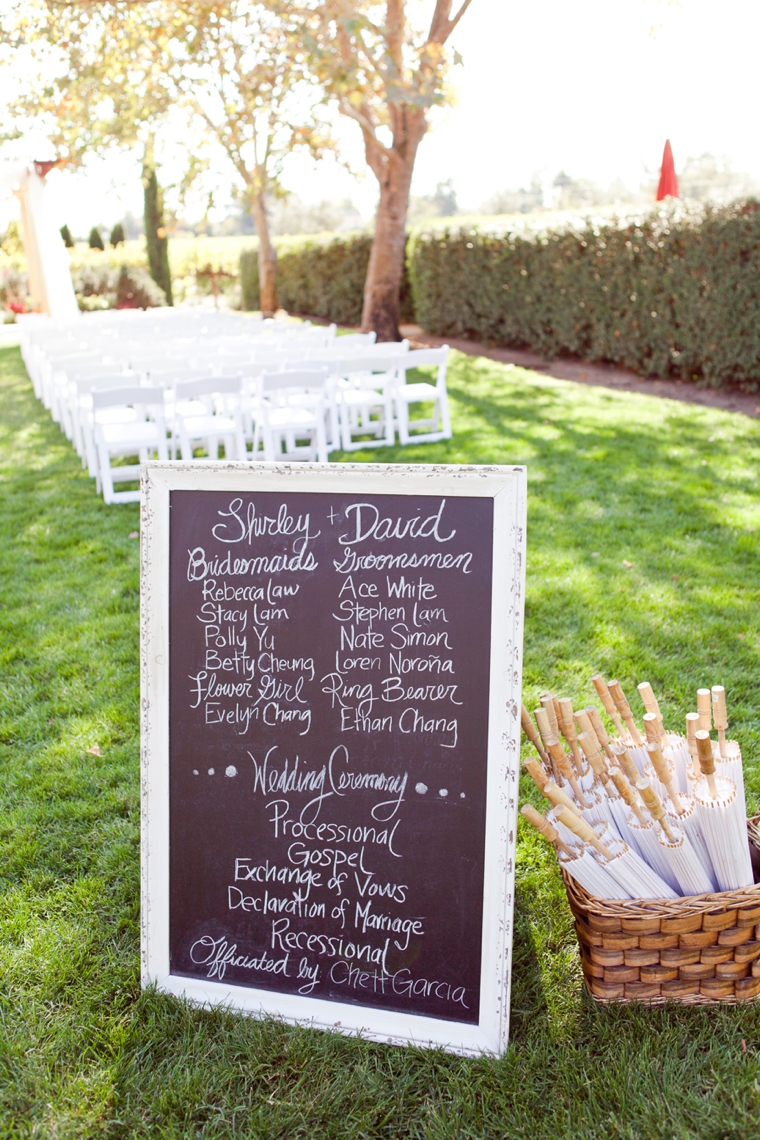 Shirley + David
Bridesmaids Groomsmen
Rebecca Law Ace White
Stacy Lam Stephen Lam
Polly Yu Nate Simon
Betty Cheung Loren Noroña
Flower Girl Ring Bearer
Evelyn Chang Ethan Chang
Wedding Ceremony
Processional
Gospel
Exchange of Vows
Declaration of Marriage
Recessional
Officiated by Chett Garcia